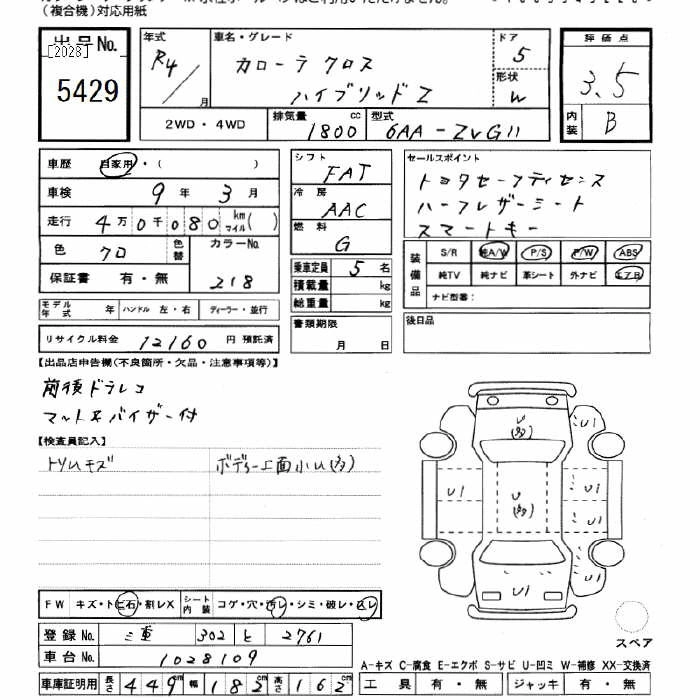 (複合機)対応用紙
出品No.
[2028]
5429
年式 R4/ 月
車名・グレード カローラ クロス
ハイブリッド Z
ドア 5
形状 W
2WD・4WD
排気量 1800 cc
型式 6AA-ZVG11
評価点 3.5
内装 B
車歴 自家用・( )
車検 9年 3月
走行 4万0千080 km マイル( )
色 クロ 色替 カラーNo. 218
保証書 有・無
モデル年式 年 ハンドル 左・右 ディーラー・並行
リサイクル料金 12160 円 預託済
シフト FAT
冷房 AAC
燃料 G
乗車定員 5 名
積載量 kg
総重量 kg
書類期限 月 日
セールスポイント
トヨタセーフティセンス
ハーフレザーシート
スマートキー
装備品 S/R 純A/W P/S P/W ABS
純TV 純ナビ 革シート 外ナビ エアB
ナビ型番:
後日品
【出品店申告欄(不良箇所・欠品・注意事項等)】
前後ドラレコ
マット&バイザー付
【検査員記入】
トリムキズ ボディー上面小U(多)
U (多)
U1
U1
U (多)
U1
U1
U1
FW キズ・トビ石・割レX シート内装 コゲ・穴・汚レ・シミ・破レ・スレ
登録No. 三重 302 と 2761
車台No. 1028109
車庫証明用 長さ 449cm 幅 182cm 高さ 162cm
スペア
A-キズ C-腐食 E-エクボ S-サビ U-凹ミ W-補修 XX-交換済
工具 有・無 ジャッキ 有・無